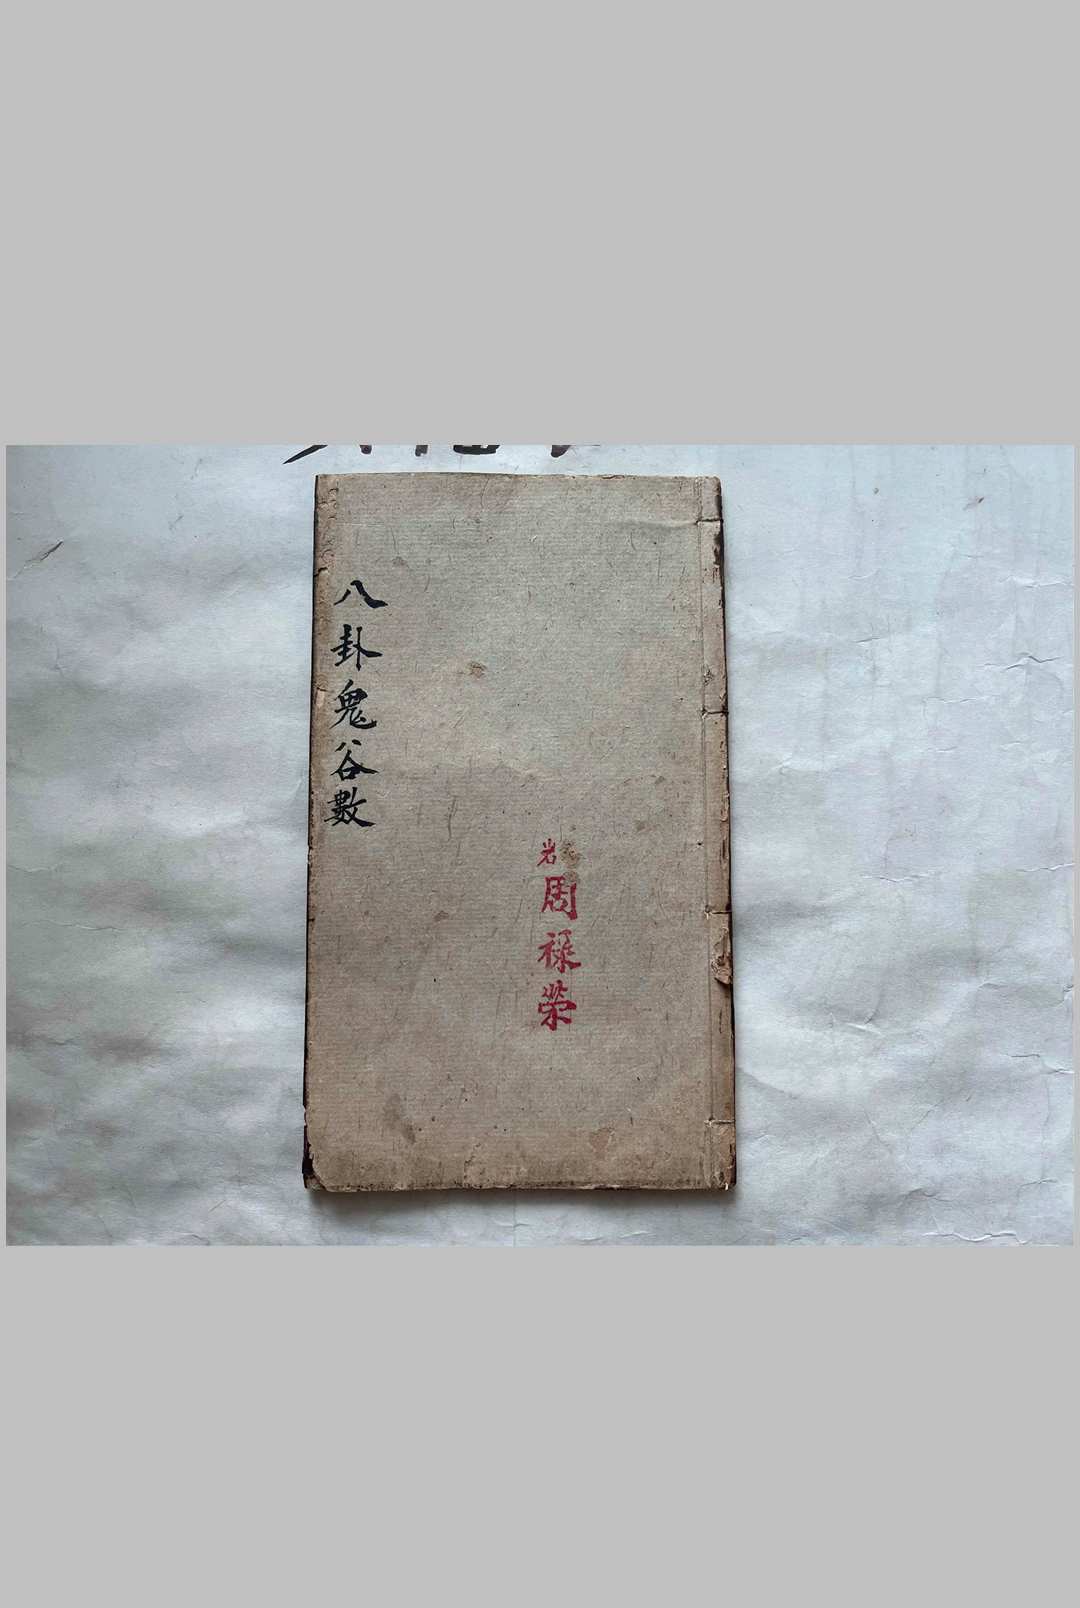 八卦鬼谷數
周祿榮